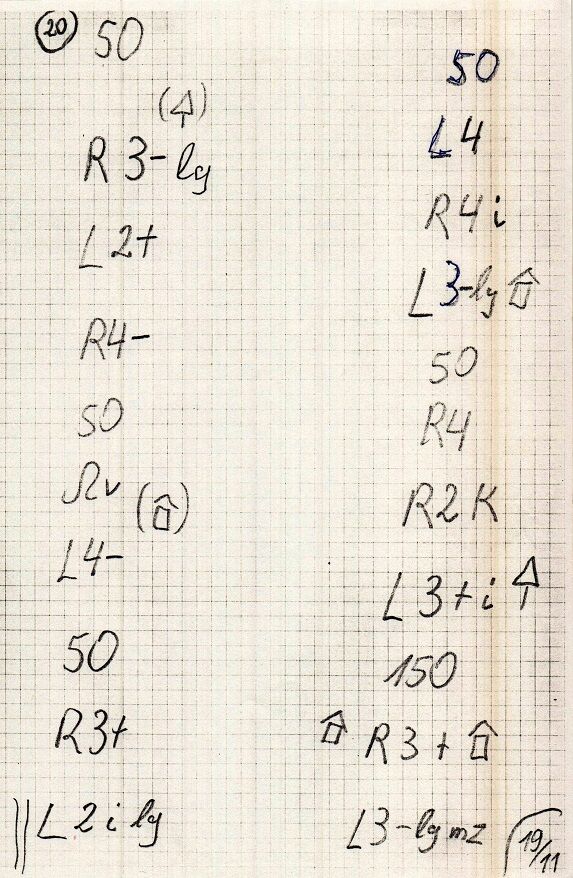 20
50
R 3- lg
L 2+
R4-
50
L4-
50
R3+
L 2 i lg
50
L4
R4 i
L 3-lg
50
R4
R2 K
L 3+ i
150
R 3 +
L3-lg mz
19/11